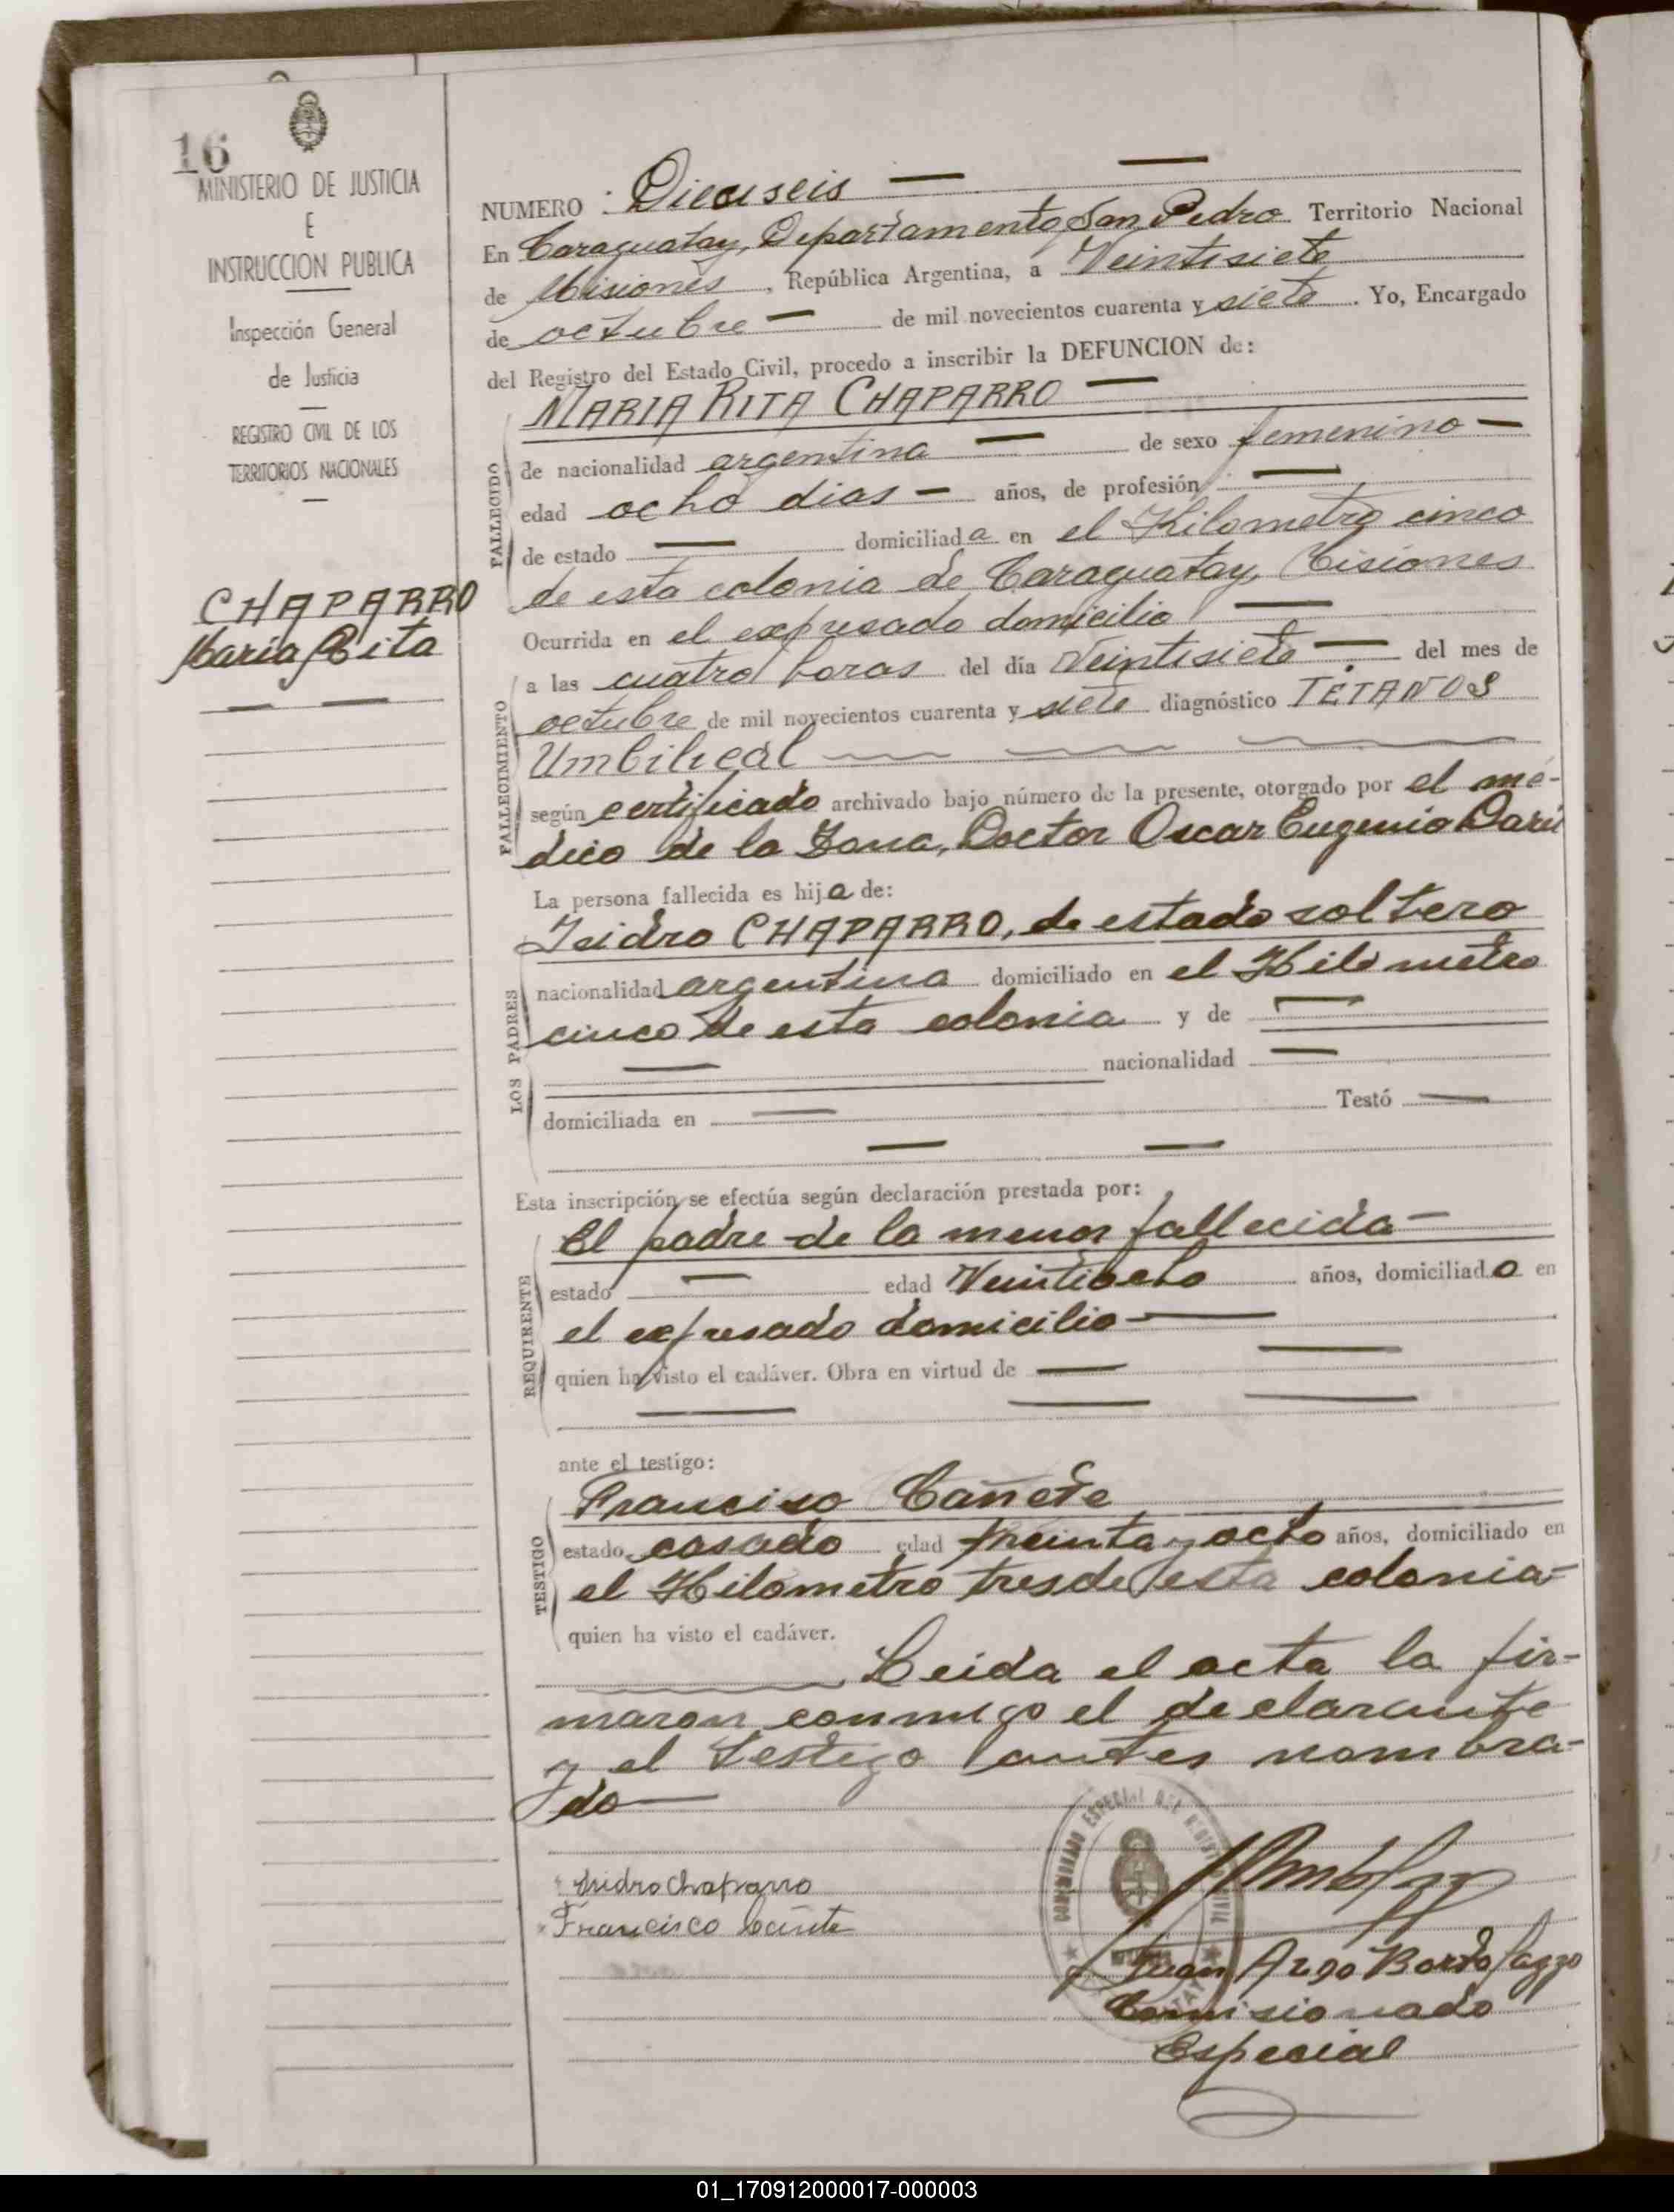 16
MINISTERIO DE JUSTICIA
E
INSTRUCCION PUBLICA
Inspección General
de Justicia
REGISTRO CIVIL DE LOS
TERRITORIOS NACIONALES
CHAPARRO
Maria Rita
NUMERO : Dieciseis
En Caraguatay, Departamento San Pedro Territorio Nacional
de Misiones , República Argentina, a Veintisiete
de octubre de mil novecientos cuarenta y siete . Yo, Encargado
del Registro del Estado Civil, procedo a inscribir la DEFUNCION de:
MARIA RITA CHAPARRO
FALLECIDO
de nacionalidad argentina de sexo femenino
edad ocho dias años, de profesión
de estado domiciliada en el Kilometro cinco
de esta colonia de Caraguatay, Misiones
Ocurrida en el expresado domicilio
FALLECIMIENTO
a las cuatro horas del día Veintisiete del mes de
octubre de mil novecientos cuarenta y siete diagnóstico TÉTANOS
Umbilical
según certificado archivado bajo número de la presente, otorgado por el mé-
dico de la Zona, Doctor Oscar Eugenio Darú
La persona fallecida es hija de:
LOS PADRES
Isidro CHAPARRO, de estado soltero
nacionalidad argentina domiciliado en el Kilómetro
cinco de esta colonia y de
nacionalidad
domiciliada en Testó
Esta inscripción se efectúa según declaración prestada por:
REQUIRENTE
El padre de la menor fallecida
estado edad Veintiocho años, domiciliado en
el expresado domicilio
quien ha visto el cadáver. Obra en virtud de
ante el testigo:
TESTIGO
Francisco Cañete
estado casado edad treinta y ocho años, domiciliado en
el Kilometro tres de esta colonia
quien ha visto el cadáver.
Leida el acta la fir-
maron conmigo el declarante
y el testigo antes nombra-
do
Isidro Chaparro
Francisco Cañete
COMISIONADO ESPECIAL DEL REGISTRO CIVIL
Juan Argo Bortolazzo
Comisionado
Especial
01_170912000017-000003